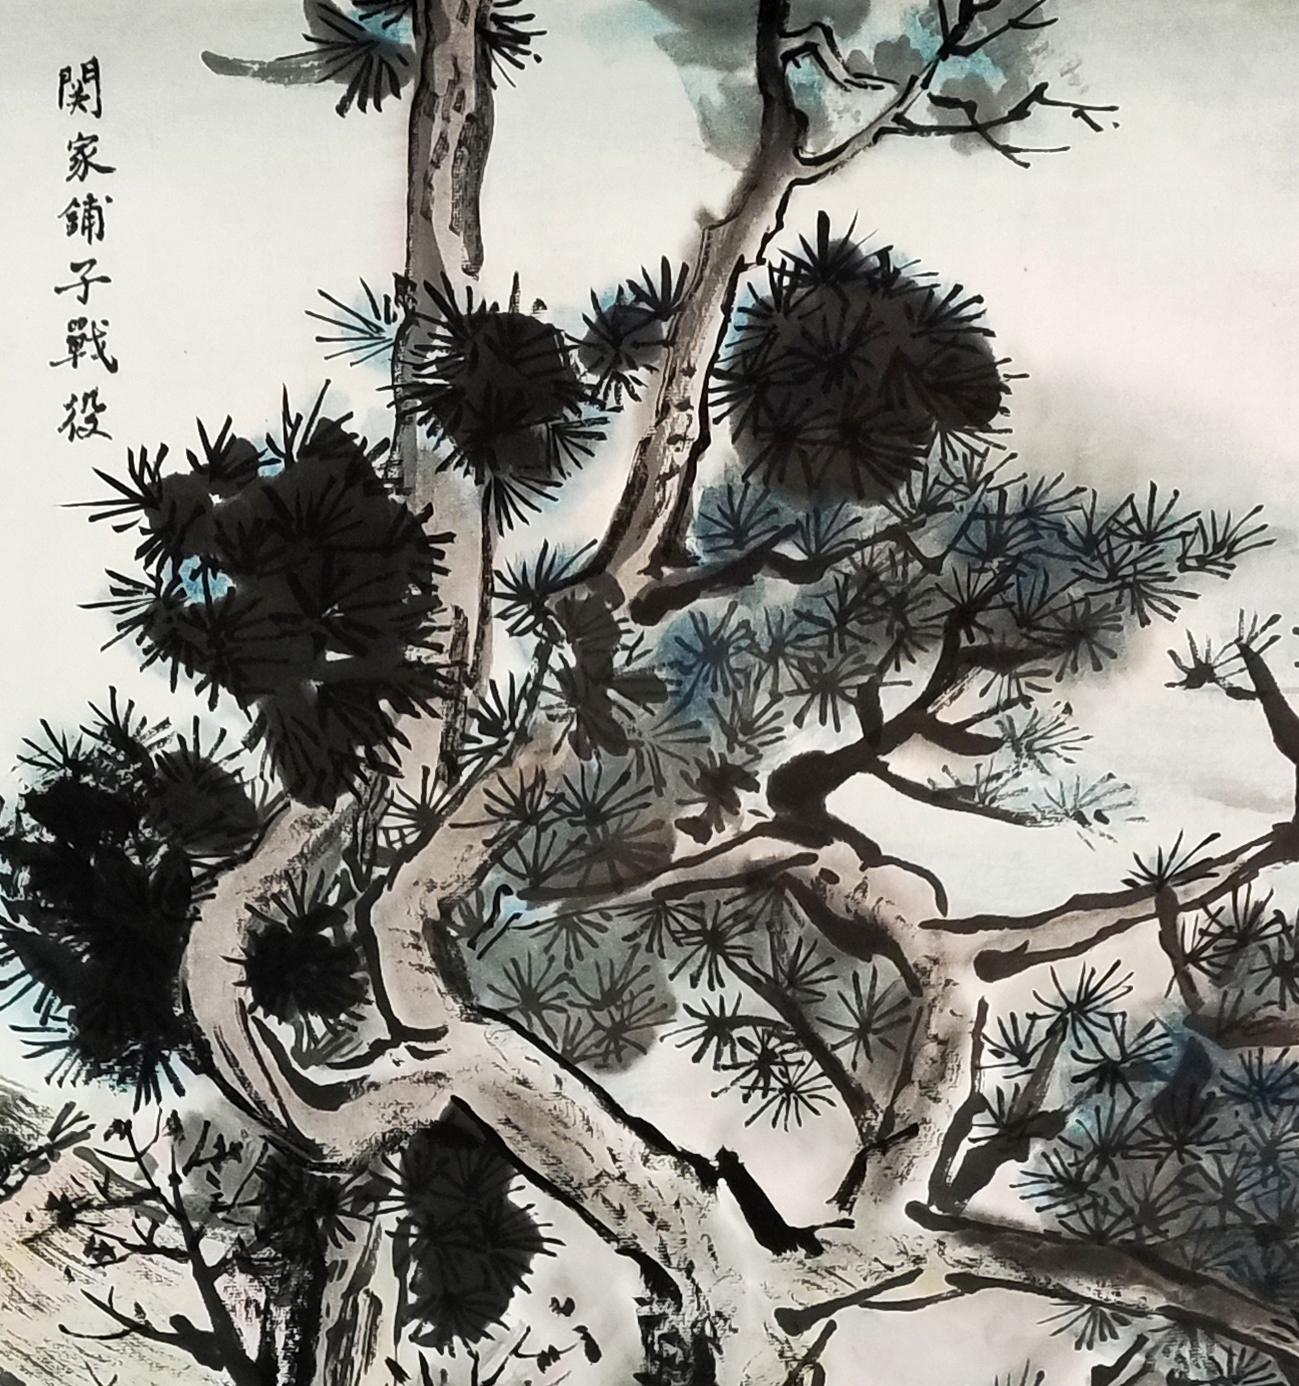 関家鋪子戰役